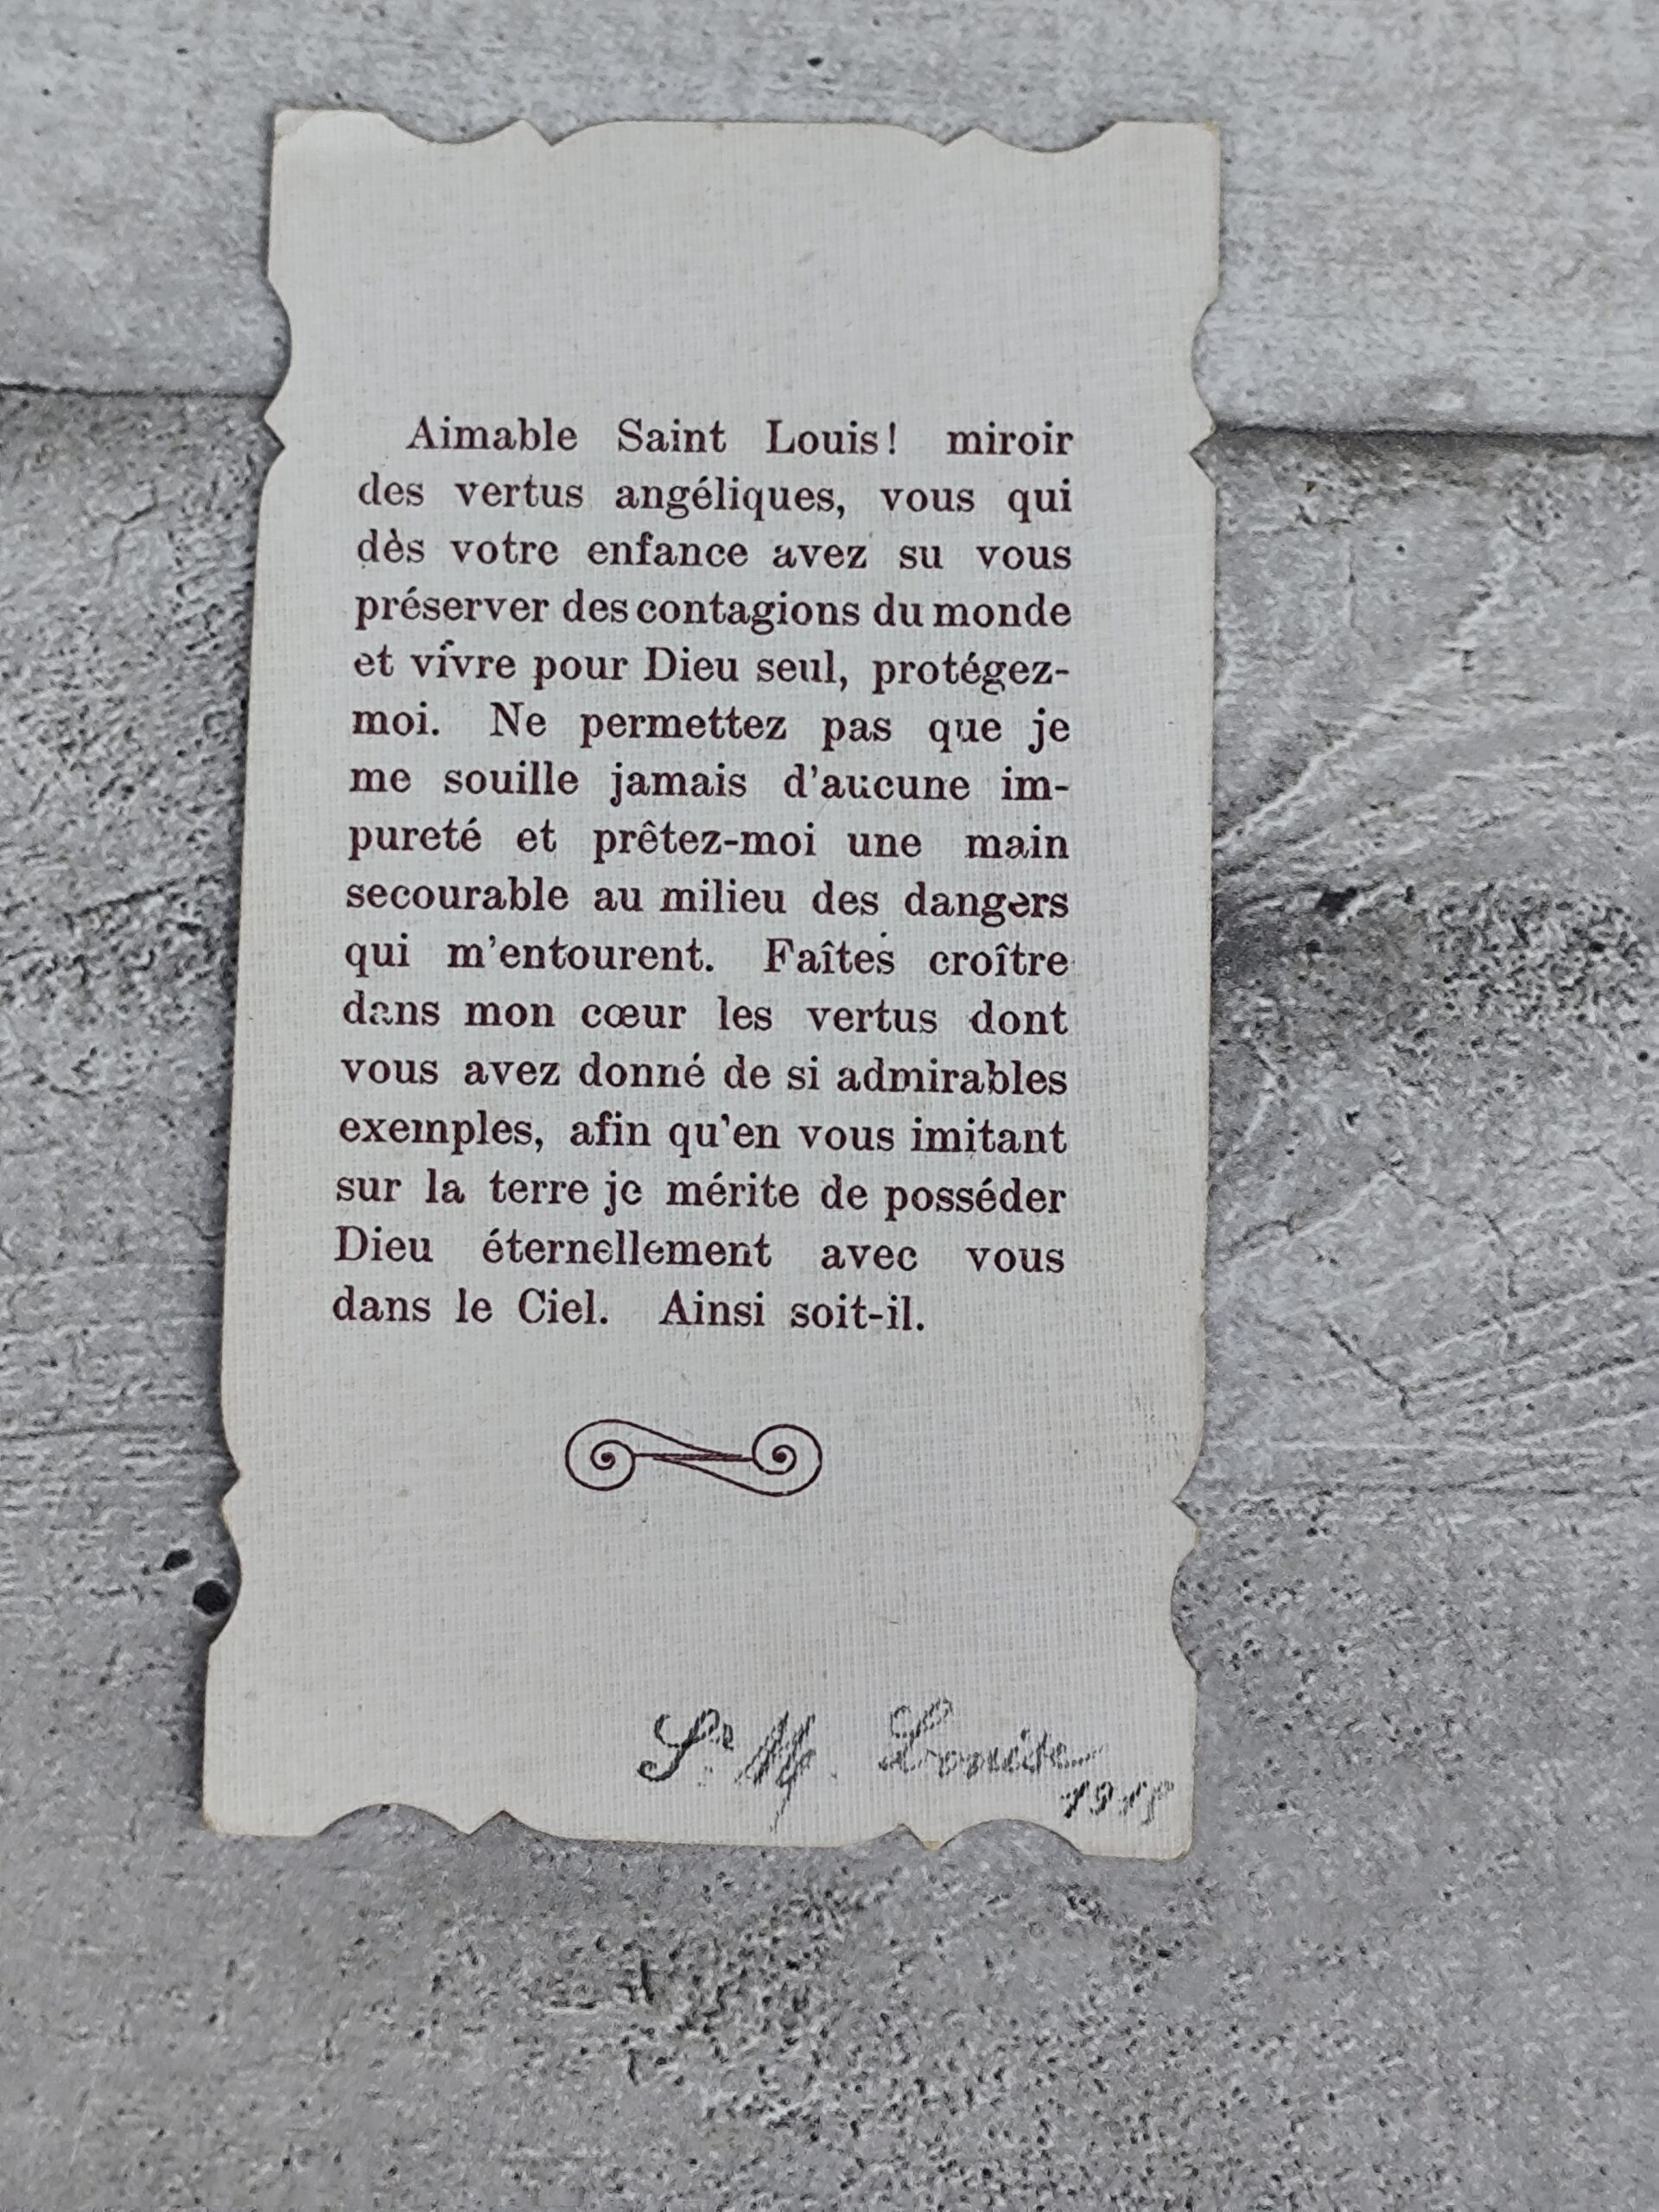 Aimable Saint Louis! miroir
des vertus angéliques, vous qui
dès votre enfance avez su vous
préserver des contagions du monde
et vivre pour Dieu seul, protégez-
moi. Ne permettez pas que je
me souille jamais d'aucune im-
pureté et prêtez-moi une main
secourable au milieu des dangers
qui m'entourent. Faîtes croître
dans mon cœur les vertus dont
vous avez donné de si admirables
exemples, afin qu'en vous imitant
sur la terre je mérite de posséder
Dieu éternellement avec vous
dans le Ciel. Ainsi soit-il.
Sr. M.